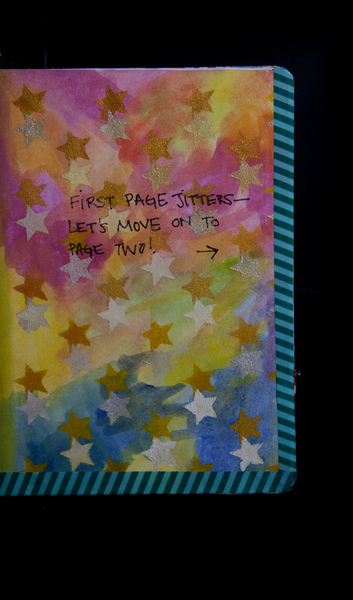 FIRST PAGE JITTERS—
LET'S MOVE ON TO
PAGE TWO! →